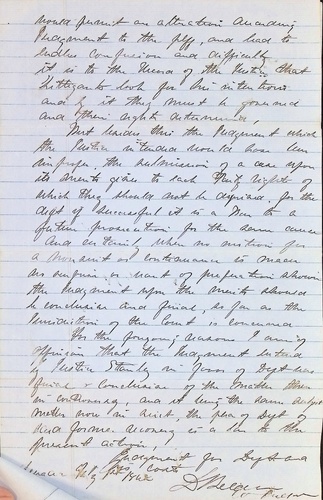 would permit an alteration
Judgment to the plff, and lead to
confusion and difficulty
it is to the of the Justice that
litigants look for his intentions
and by it they must be governed
and their rights determined,
But besides this the Judgment which
the Justice intended would have been
improper. the submission of a case upon
its merits gives to each party rights of
which they should not be deprived. for the
deft if successful it is a bar to a
future prosecution for the same cause
And certainly when no motion for
a nonsuit or continuance is made
no surprise or want of preparation shown
the Judgment upon the merits should
be conclusive and final, as far as the
Jurisdiction of the Court is concerned
For the foregoing reasons I am of
opinion that the Judgment entered
by Justice in favor of Deft was
final & conclusive of the matter then
in controversy and it being the same subject
matter now in suit, the plea of Deft of
and former recovery is a bar to the
present action,
Judgement for Deft and
costs